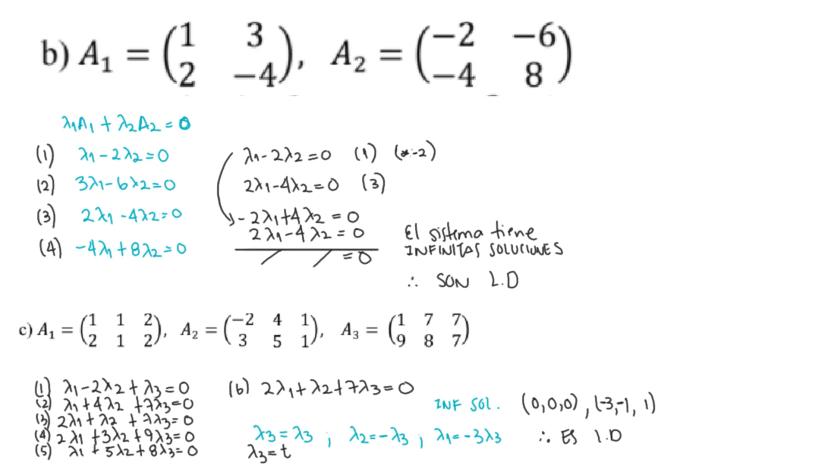 b) A₁ = (1 3
2 −4), A₂ = (−2 −6
−4 8)
λ1A1 + λ2A2 = 0
(1) λ1-2λ2=0
(2) 3λ1-6λ2=0
(3) 2λ1-4λ2=0
(4) -4λ1+8λ2=0
λ1-2λ2=0 (1) (*-2)
2λ1-4λ2=0 (3)
-2λ1+4λ2=0
2λ1-4λ2=0
=0
El sistema tiene
INFINITAS SOLUCIONES
∴ SON L.D
c) A₁ = (1 1 2
2 1 2), A₂ = (−2 4 1
3 5 1), A₃ = (1 7 7
9 8 7)
(1) λ1-2λ2+λ3=0
(2) λ1+4λ2+7λ3=0
(3) 2λ1+λ2+7λ3=0
(4) 2λ1+3λ2+9λ3=0
(5) λ1+5λ2+8λ3=0
(6) 2λ1+λ2+7λ3=0
INF SOL. (0,0,0), (-3,-1, 1)
λ3=λ3, λ2=-λ3, λ1=-3λ3 ∴ ES L.D
λ3=t